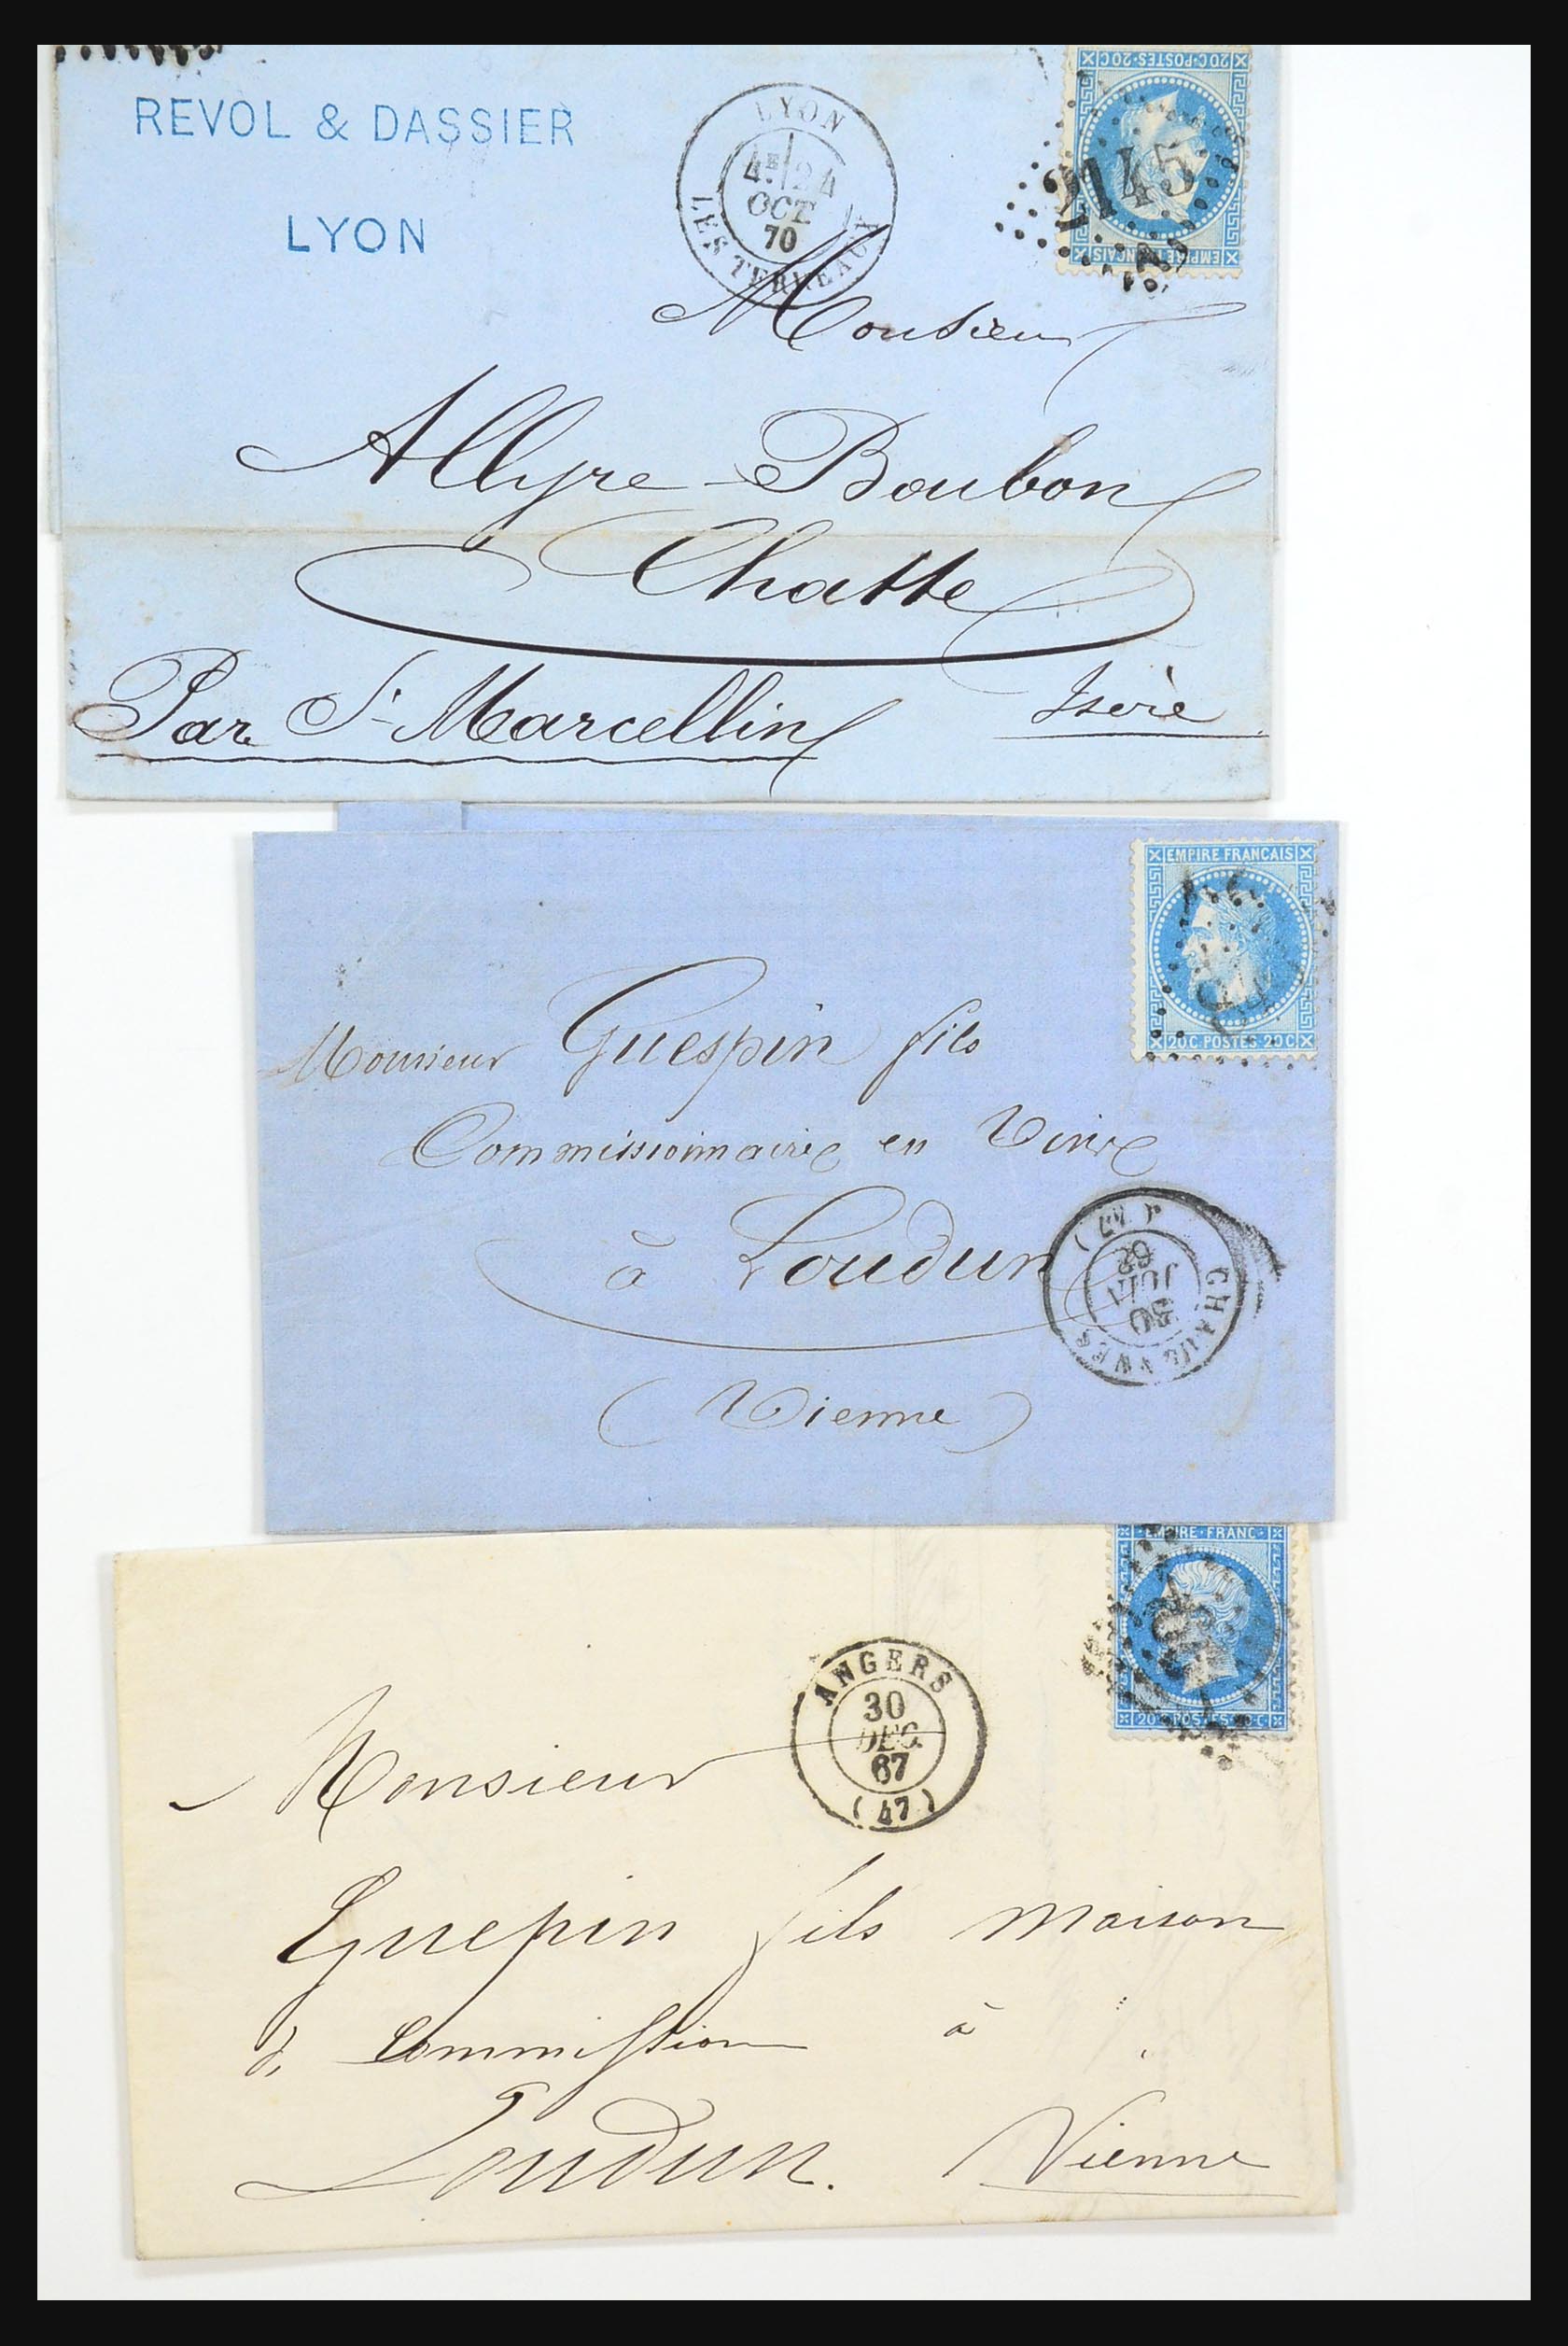 REVOL & DASSIER
LYON
LYON
4E 24
OCT
70
LES TERREAUX
20C·POSTES·20C
EMPIRE FRANÇAIS
2145
Monsieur
Allyre Boubon
Chatte
Isère
Par St Marcellin
EMPIRE FRANÇAIS
20C POSTES 20C
Monsieur Guespin fils
Commissionnaire en Vins
à Loudun
(Vienne)
30
JUIN
EMPIRE·FRANC
20C POSTES 20C
ANGERS
30
DEC.
67
(47)
Monsieur
Guepin fils maison
de Commission à
Loudun. Vienne